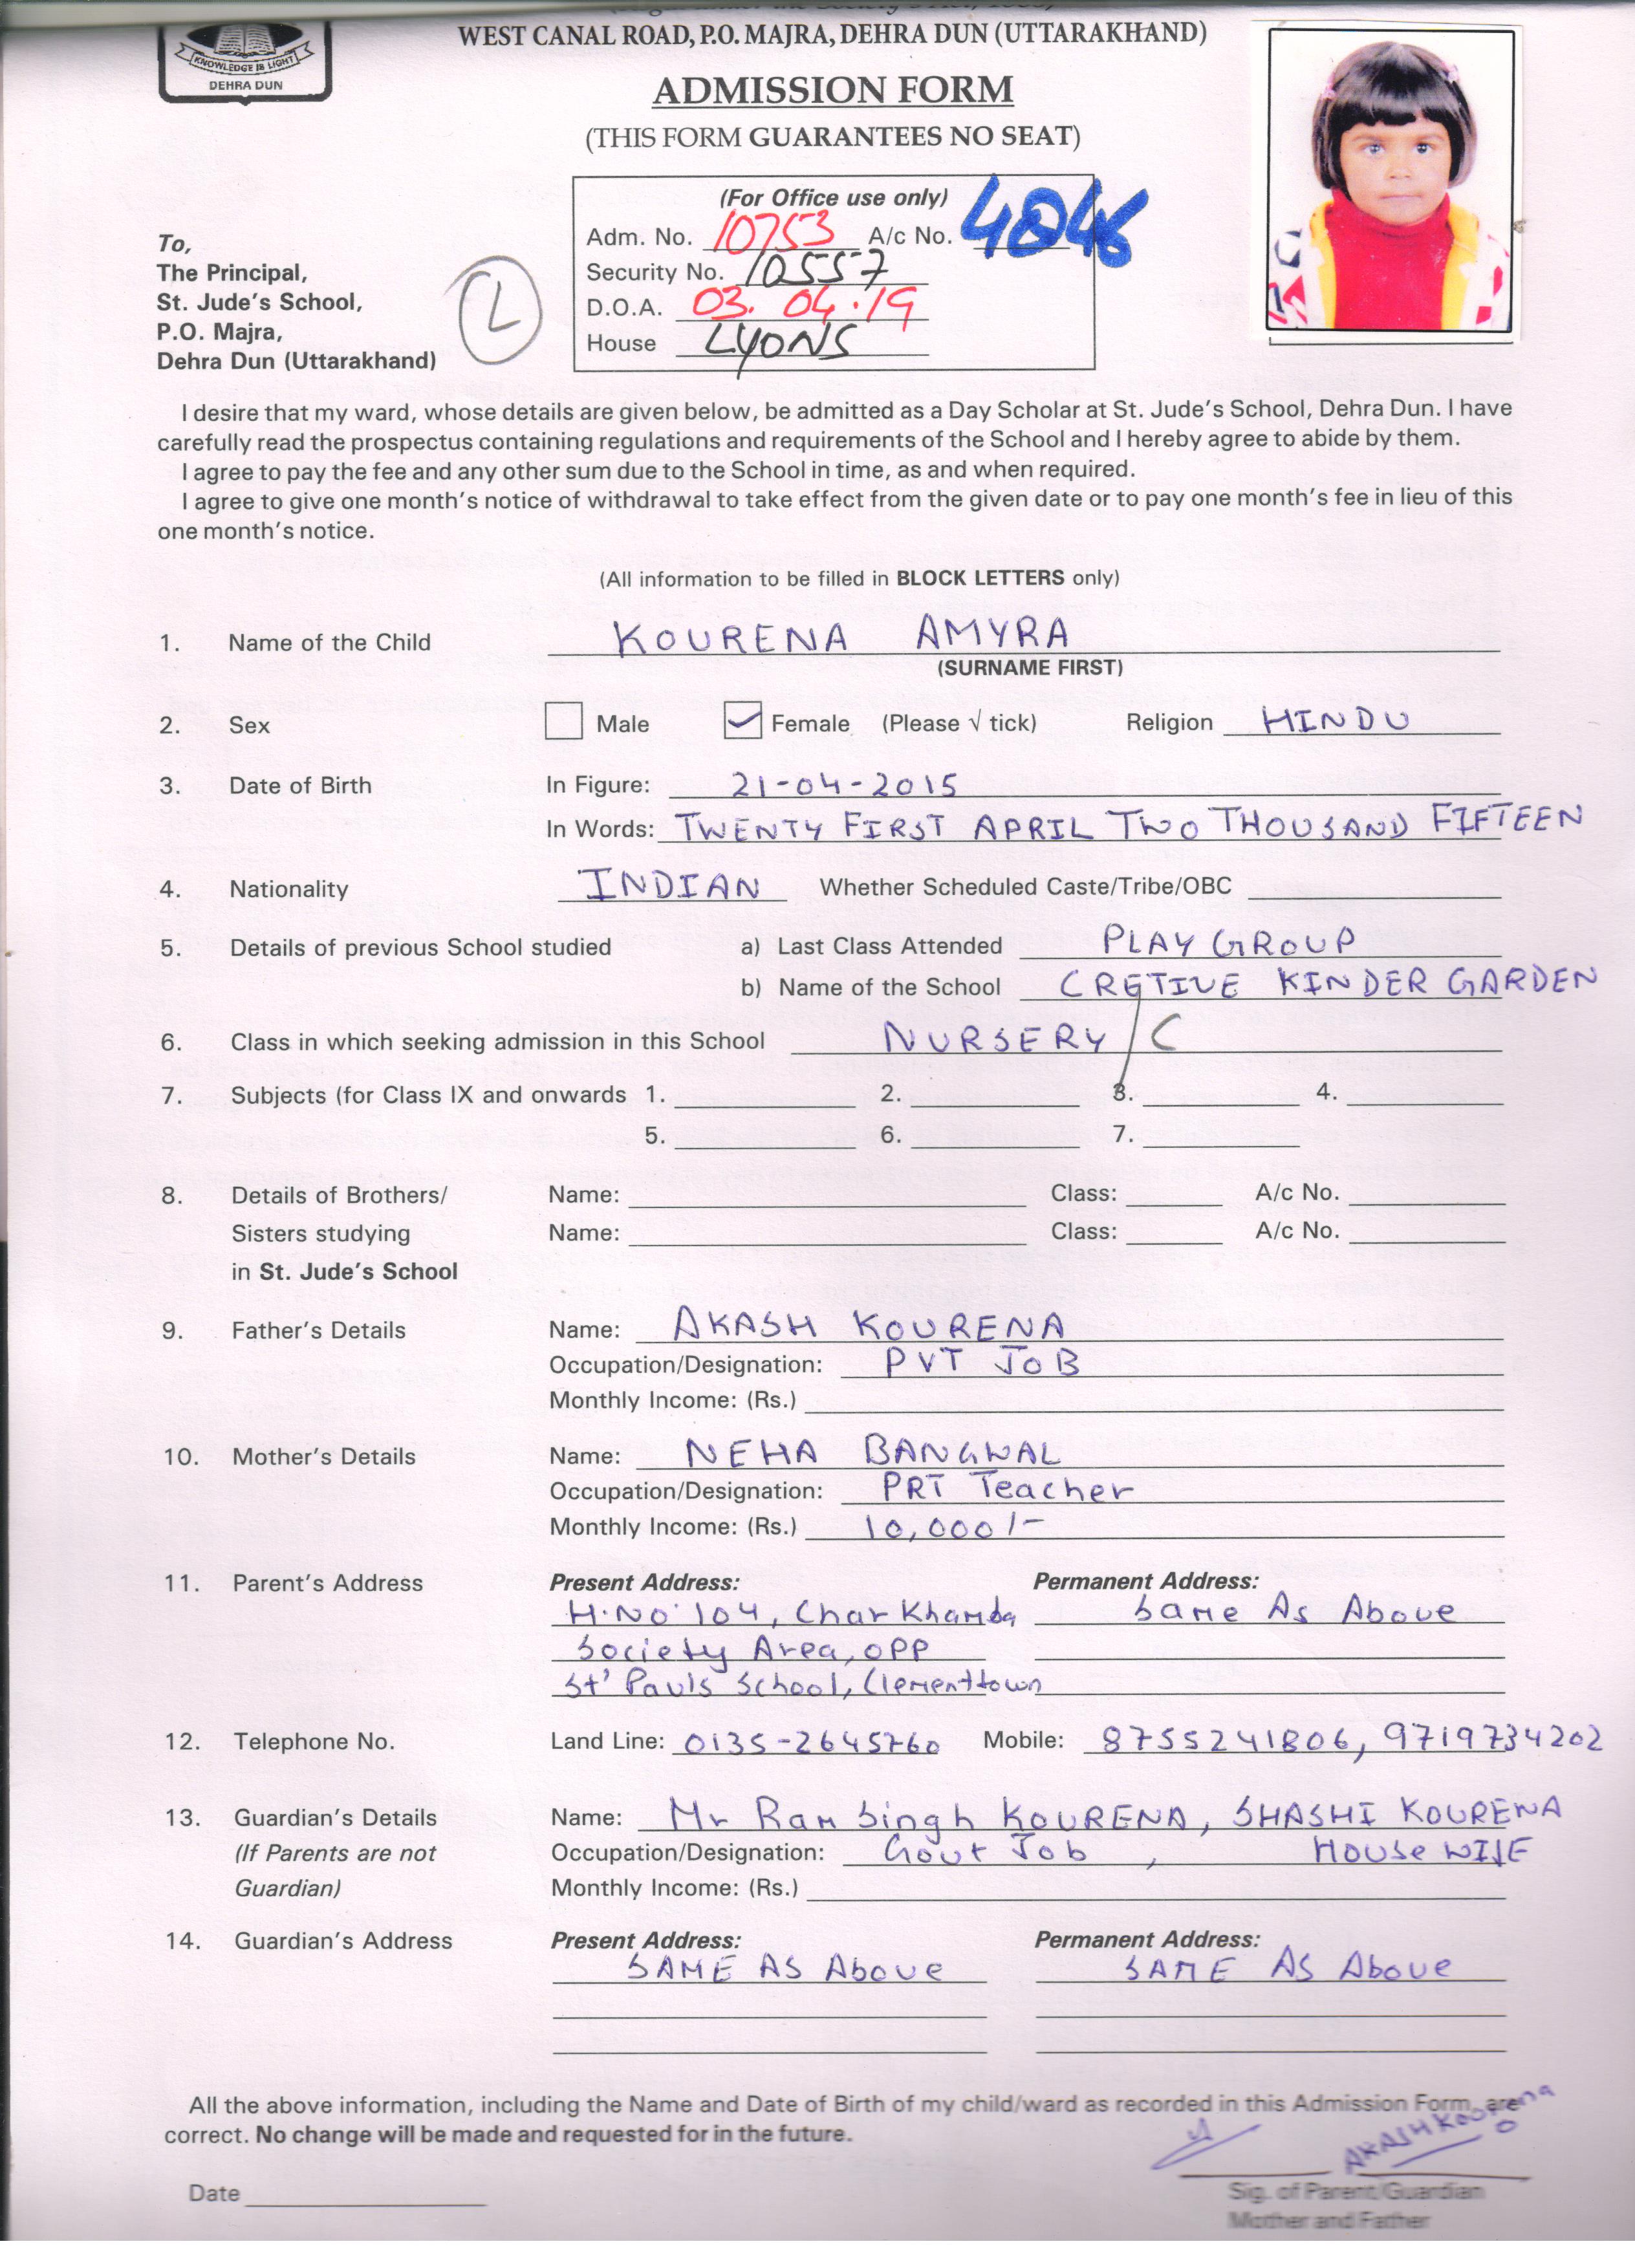 WEST CANAL ROAD, P.O. MAJRA, DEHRA DUN (UTTARAKHAND)
KNOWLEDGE IS LIGHT
DEHRA DUN
ADMISSION FORM
(THIS FORM GUARANTEES NO SEAT)
(For Office use only)
Adm. No. 10753 A/c No. 4846
Security No. 10557
D.O.A. 03.04.19
House LYONS
L
To,
The Principal,
St. Jude's School,
P.O. Majra,
Dehra Dun (Uttarakhand)
I desire that my ward, whose details are given below, be admitted as a Day Scholar at St. Jude's School, Dehra Dun. I have
carefully read the prospectus containing regulations and requirements of the School and I hereby agree to abide by them.
I agree to pay the fee and any other sum due to the School in time, as and when required.
I agree to give one month's notice of withdrawal to take effect from the given date or to pay one month's fee in lieu of this
one month's notice.
(All information to be filled in BLOCK LETTERS only)
1. Name of the Child KOURENA AMYRA
(SURNAME FIRST)
2. Sex Male Female (Please √ tick) Religion HINDU
3. Date of Birth In Figure: 21-04-2015
In Words: TWENTY FIRST APRIL TWO THOUSAND FIFTEEN
4. Nationality INDIAN Whether Scheduled Caste/Tribe/OBC
5. Details of previous School studied a) Last Class Attended PLAY GROUP
b) Name of the School CRETIVE KINDER GARDEN
6. Class in which seeking admission in this School NURSERY / C
7. Subjects (for Class IX and onwards 1. 2. 3. 4.
5. 6. 7.
8. Details of Brothers/ Name: Class: A/c No.
Sisters studying Name: Class: A/c No.
in St. Jude's School
9. Father's Details Name: AKASH KOURENA
Occupation/Designation: PVT JOB
Monthly Income: (Rs.)
10. Mother's Details Name: NEHA BANGWAL
Occupation/Designation: PRT Teacher
Monthly Income: (Rs.) 10,000/-
11. Parent's Address Present Address: Permanent Address:
H.No 104, Char Khamba Same As Above
Society Area, OPP
St' Pauls School, Clementtown
12. Telephone No. Land Line: 0135-2645760 Mobile: 8755241806, 9719734202
13. Guardian's Details Name: Mr Ram Singh KOURENA, SHASHI KOURENA
(If Parents are not Occupation/Designation: Govt Job , House WIFE
Guardian) Monthly Income: (Rs.)
14. Guardian's Address Present Address: Permanent Address:
SAME AS Above SAME AS Above
All the above information, including the Name and Date of Birth of my child/ward as recorded in this Admission Form, are
correct. No change will be made and requested for in the future.
AKASH Kourena
Date
Sig. of Parent/Guardian
Mother and Father